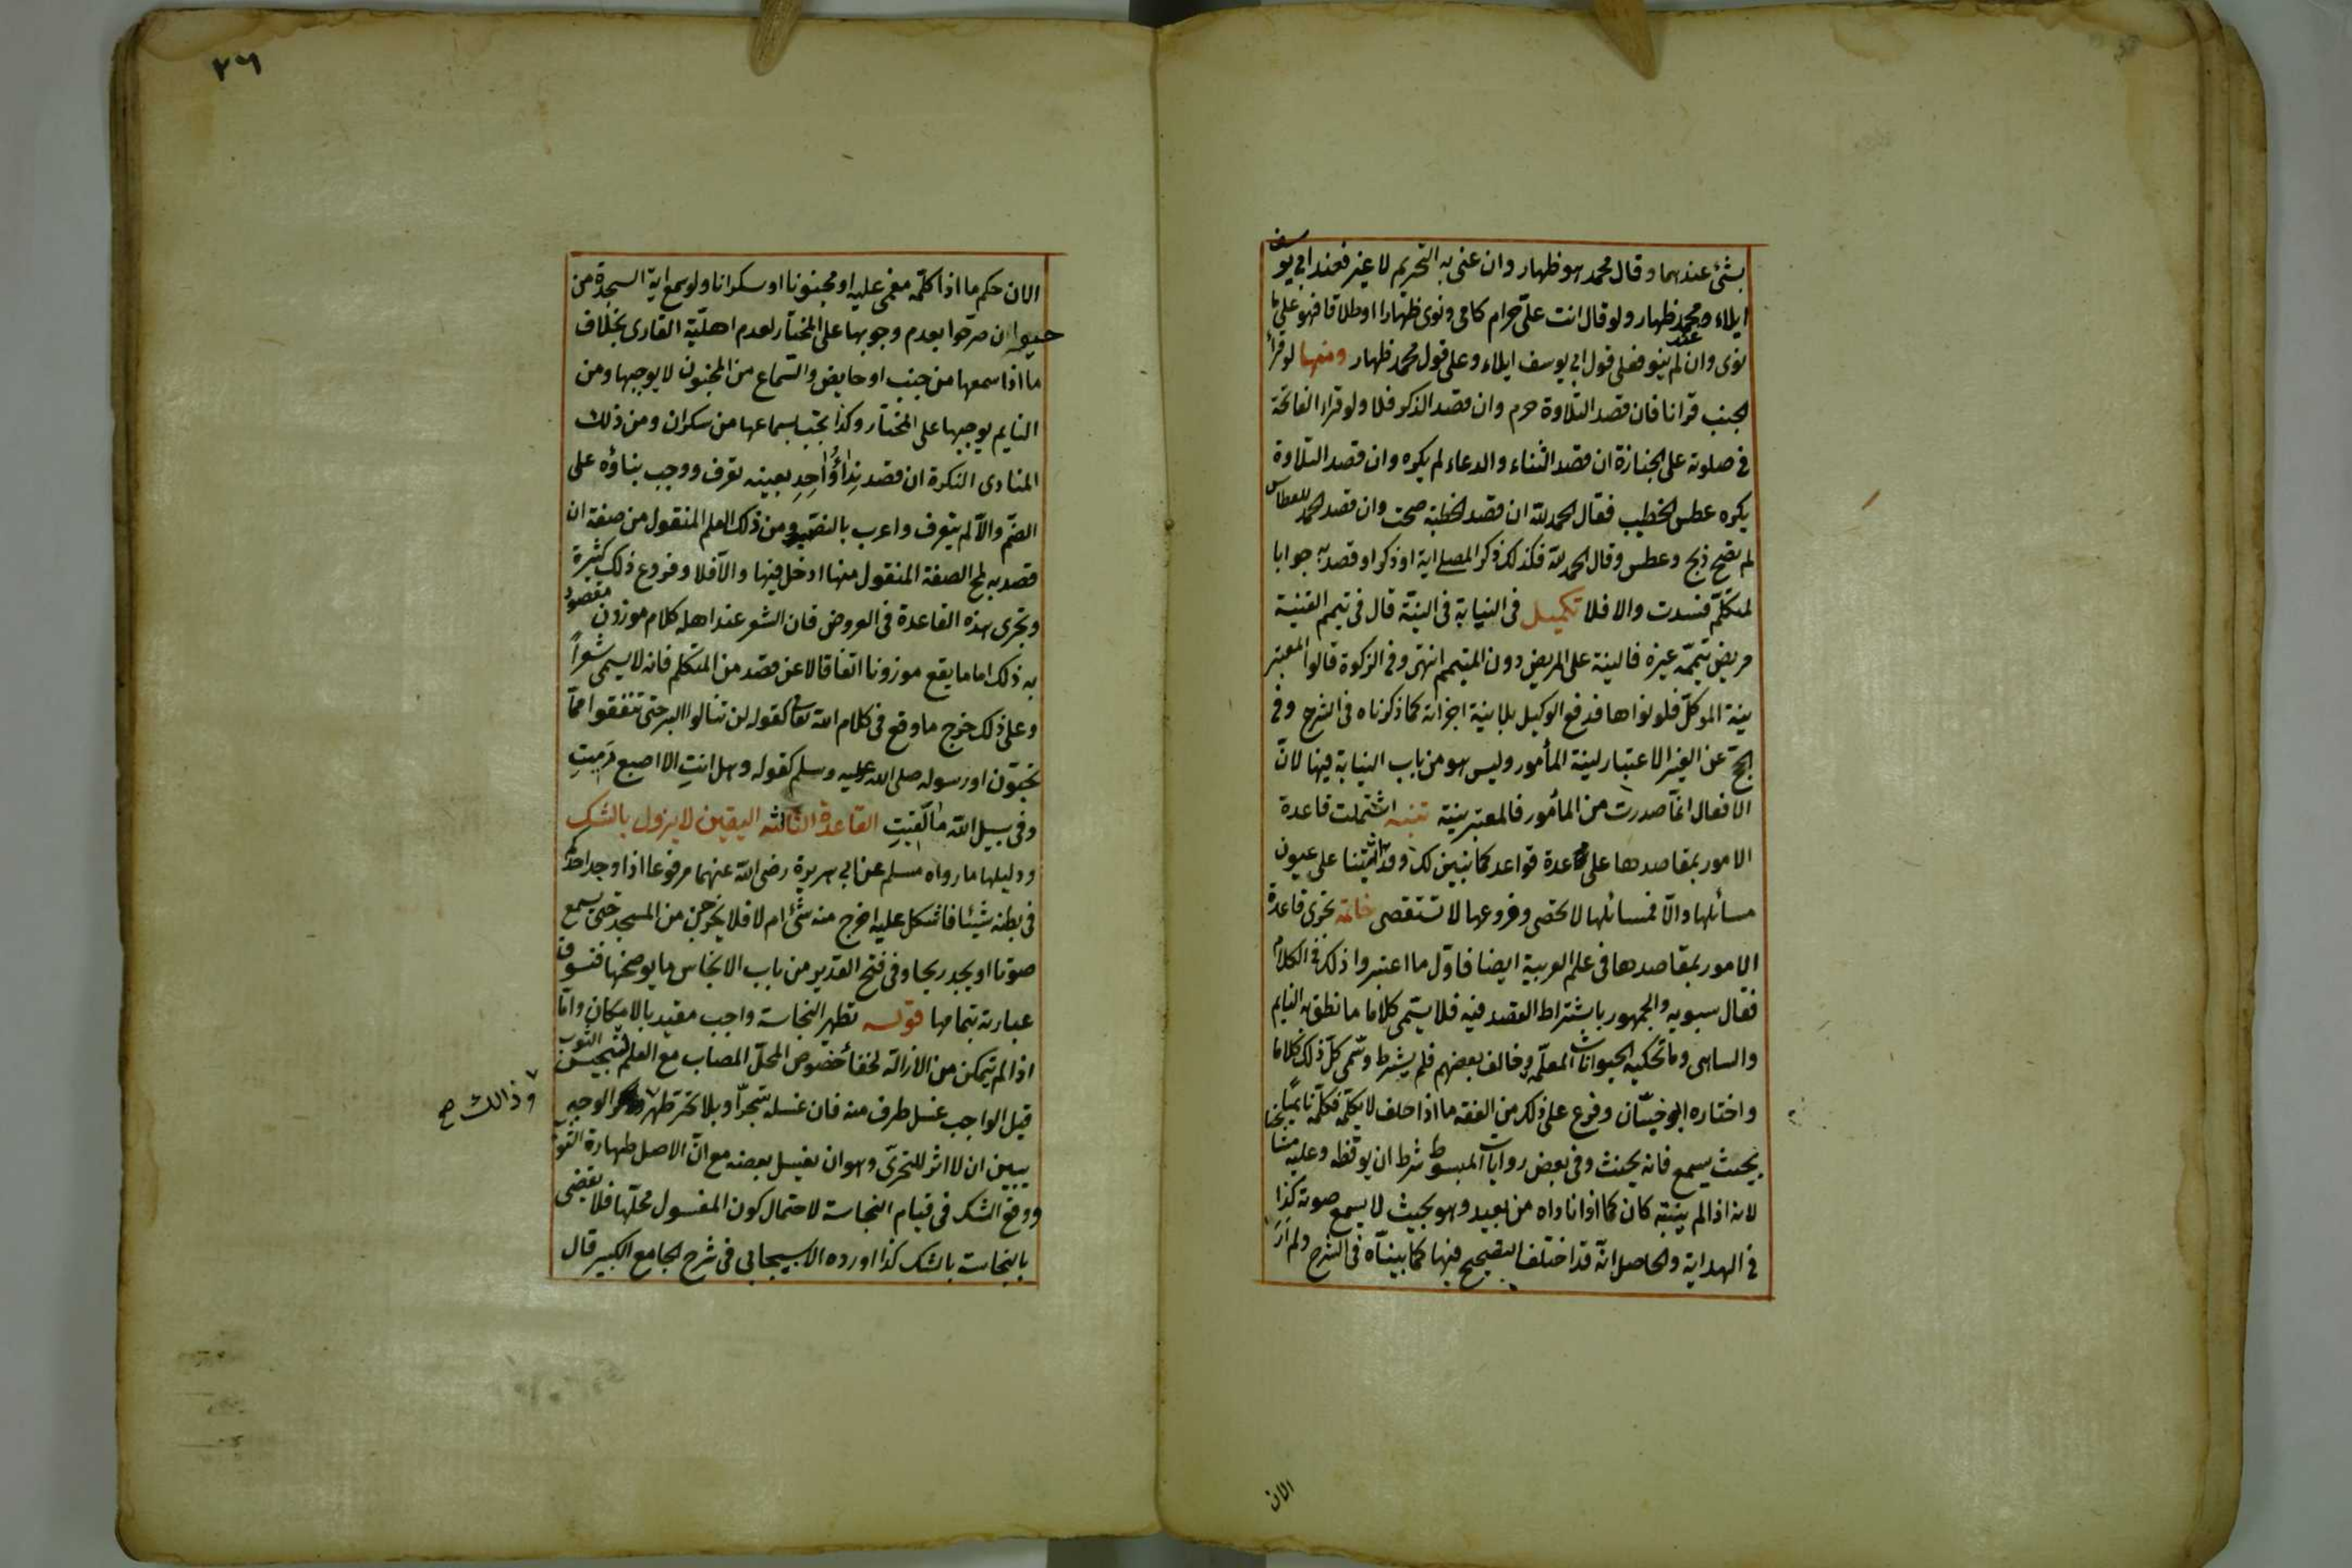 بشئ عندهما وقال محمد هو ظهار وان عنى به التحريم لا غير فعند ابي يوسف
ايلاء وعند محمد ظهار ولو قال انت علىّ حرام كامى ونوى ظهارا او طلاقا فهو على ما
نوى وان لم ينو فعلى قول ابي يوسف ايلاء وعلى قول محمد ظهار ومنها لو قرأ
الجنب قرانا فان قصد التلاوة حرم وان قصد الذكر فلا ولو قرا الفاتحة
فى صلوته على الجنازة ان قصد الثناء والدعاء لم يكره وان قصد التلاوة
يكره عطس الخطيب فقال الحمد لله ان قصد الخطبة صحت وان قصد الحمد للعطاس
لم تصح ذبح وعطس وقال الحمد لله فكذلك ذكر المصلى اية او ذكرا وقصد به جوابا
لمتكلّم فسدت والا فلا تكميل فى النيابة فى النيّة قال فى تيمم القنية
مريض تيمّمه غيره فالنية على المريض دون المتيمم انتهى وفى الزكوة قالوا المعتبر
نية الموكّل فلو نواها فدفع الوكيل بلا نية اجزاته كما ذكرناه فى الشرح وفى
الحج عن الغير الاعتبار لنية المأمور وليس هو من باب النيابة فيها لانّ
الافعال انما صدرت من المأمور فالمعتبر نيته تنبيه اشتملت قاعدة
الامور بمقاصدها على عدة قواعد كما تبين لك وقد اتينا على عيون
مسائلها والّا فمسائلها لا تحصى وفروعها لا تستقصى خاتمة تجرى قاعدة
الامور بمقاصدها فى علم العربية ايضا فاوّل ما اعتبروا ذلك فى الكلام
فقال سبويه والجمهور باشتراط القصد فيه فلا يسمّى كلاما ما نطق به النايم
والساهى وما تحكيه الحيوانات المعلّمة وخالف بعضهم فلم يشرط وسمّى كلّ ذلك كلاما
واختاره ابو حيّان وفرع على ذلك من الفقه ما اذا حلف لا يكلّمه فكلّمه نايمًا
بحيث يسمع فانه يحنث وفى بعض روايات المبسوط شرط ان يوقظه وعليه مشايخنا
لانه اذا لم ينتبه كان كما اذا ناداه من بعيد وهو بحيث لا يسمع صوته كذا
فى الهداية والحاصل انّه قد اختلف التصحيح فيها كما بيناه فى الشرح ولم أر
الان
٢٦
الان حكم ما اذا كلّمه مغمى عليه او مجنونا او سكرانا ولو سمع اية السجدة من
حيوان صرحوا بعدم وجوبها على المختار لعدم اهليّة القارى بخلاف
ما اذا سمعها من جنب او حايض والسماع من المجنون لا يوجبها ومن
النايم يوجبها على المختار وكذا تجب بسماعها من سكران ومن ذلك
المنادى النكرة ان قصد نداؤ احد بعينه تعرف ووجب بناؤه على
الضمّ والّا لم يتعرف واعرب بالنصب ومن ذلك العلم المنقول من صفة ان
قصد به لمح الصفة المنقول منها ادخل فيها والّا فلا وفروع ذلك كثيرة
وتجرى هذه القاعدة فى العروض فان الشعر عند اهله كلام موزون مقصود
به ذلك اما ما يقع موزونا اتفاقا لا عن قصد من المتكلم فانه لا يسمى شعراً
وعلى ذلك خرج ما وقع فى كلام الله تعالى كقوله لن تنالوا البر حتى تنفقوا ممّا
تحبون او رسوله صلى الله عليه وسلم كقوله وهل انتِ الا اصبع دَمِيتِ
وفى سبيل الله ما لقيتِ القاعدة الثالثه اليقين لا يزول بالشك
ودليلها ما رواه مسلم عن ابي هريرة رضى الله عنهما مرفوعا اذا وجد احدكم
فى بطنه شيئا فاشكل عليه اخرج منه شئ ام لا فلا يخرجن من المسجد حتى يسمع
صوتا او يجد ريحا وفى فتح القدير من باب الانجاس ما يوضحها فنسوق
عبارته بتمامها قوله تطهير النجاسة واجب مقيد بالامكان وامّا
اذا لم يتمكن من الازالة لخفأ خصوص المحلّ المصاب مع العلم بتنجيس الثوب
قيل الواجب غسل طرف منه فان غسله بتحرّ او بلا تحر طهر الوجه
يبين ان لا اثر للتحرّى وهو ان يغسل بعضه مع انّ الاصل طهارة الثوب
ووقع الشك فى قيام النجاسة لاحتمال كون المغسول محلّها فلا يقضى
بالنجاسة بالشك كذا اورده الاسبيجابى فى شرح الجامع الكبير قال
وذالك صح